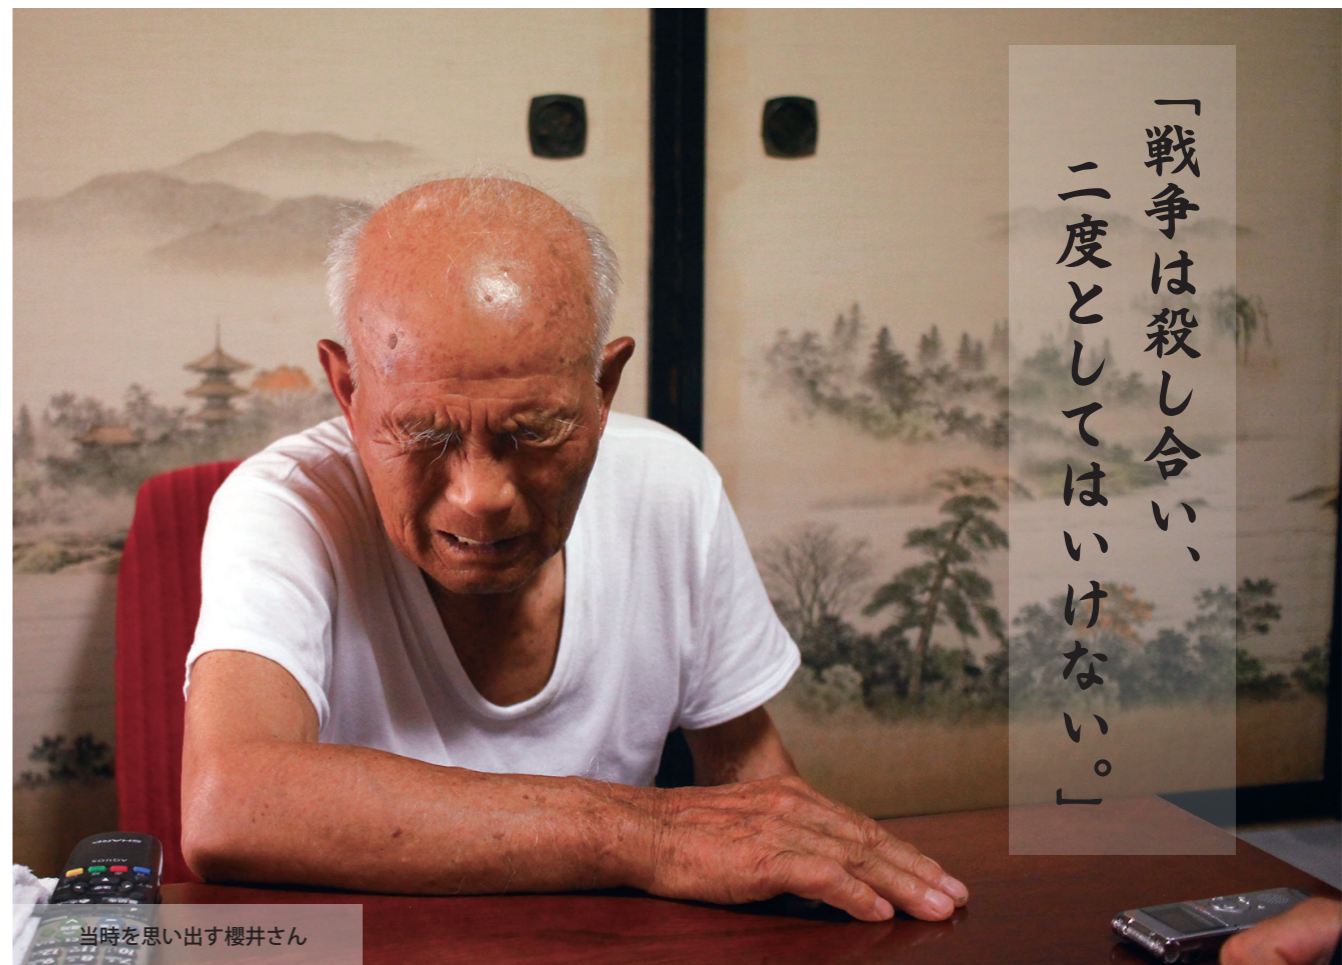 「戦争は殺し合い、
二度としてはいけない。」
SHARP
AQUOS
当時を思い出す櫻井さん